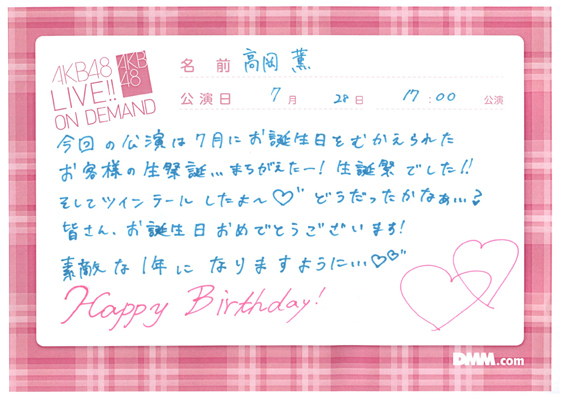 AKB48
LIVE!!
ON DEMAND
AKB
48
名 前 高岡 薫
公演日 7月 28日 17:00 公演
今回の公演は7月にお誕生日をむかえられた
お客様の生祭誕...まちがえたー! 生誕祭でした!!
そしてツインテールしたよ〜♡" どうだったかなぁ...?
皆さん、お誕生日おめでとうございます!
素敵な1年になりますように...♡♡"
Happy Birthday!
DMM.com